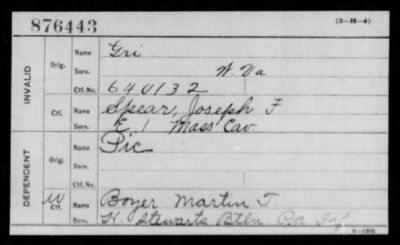 876443 (3-H-4)
INVALID
Orig. Name Gri
Serv. W. Va
Ctf. No. 640132
Ctf. Name Spear, Joseph F
Serv. E. 1 Mass Cav
DEPENDENT
Orig. Name Pic
Serv.
W Ctf. Name Boyer Martin T.
Serv. H. Stewarts Btln Pa Inf